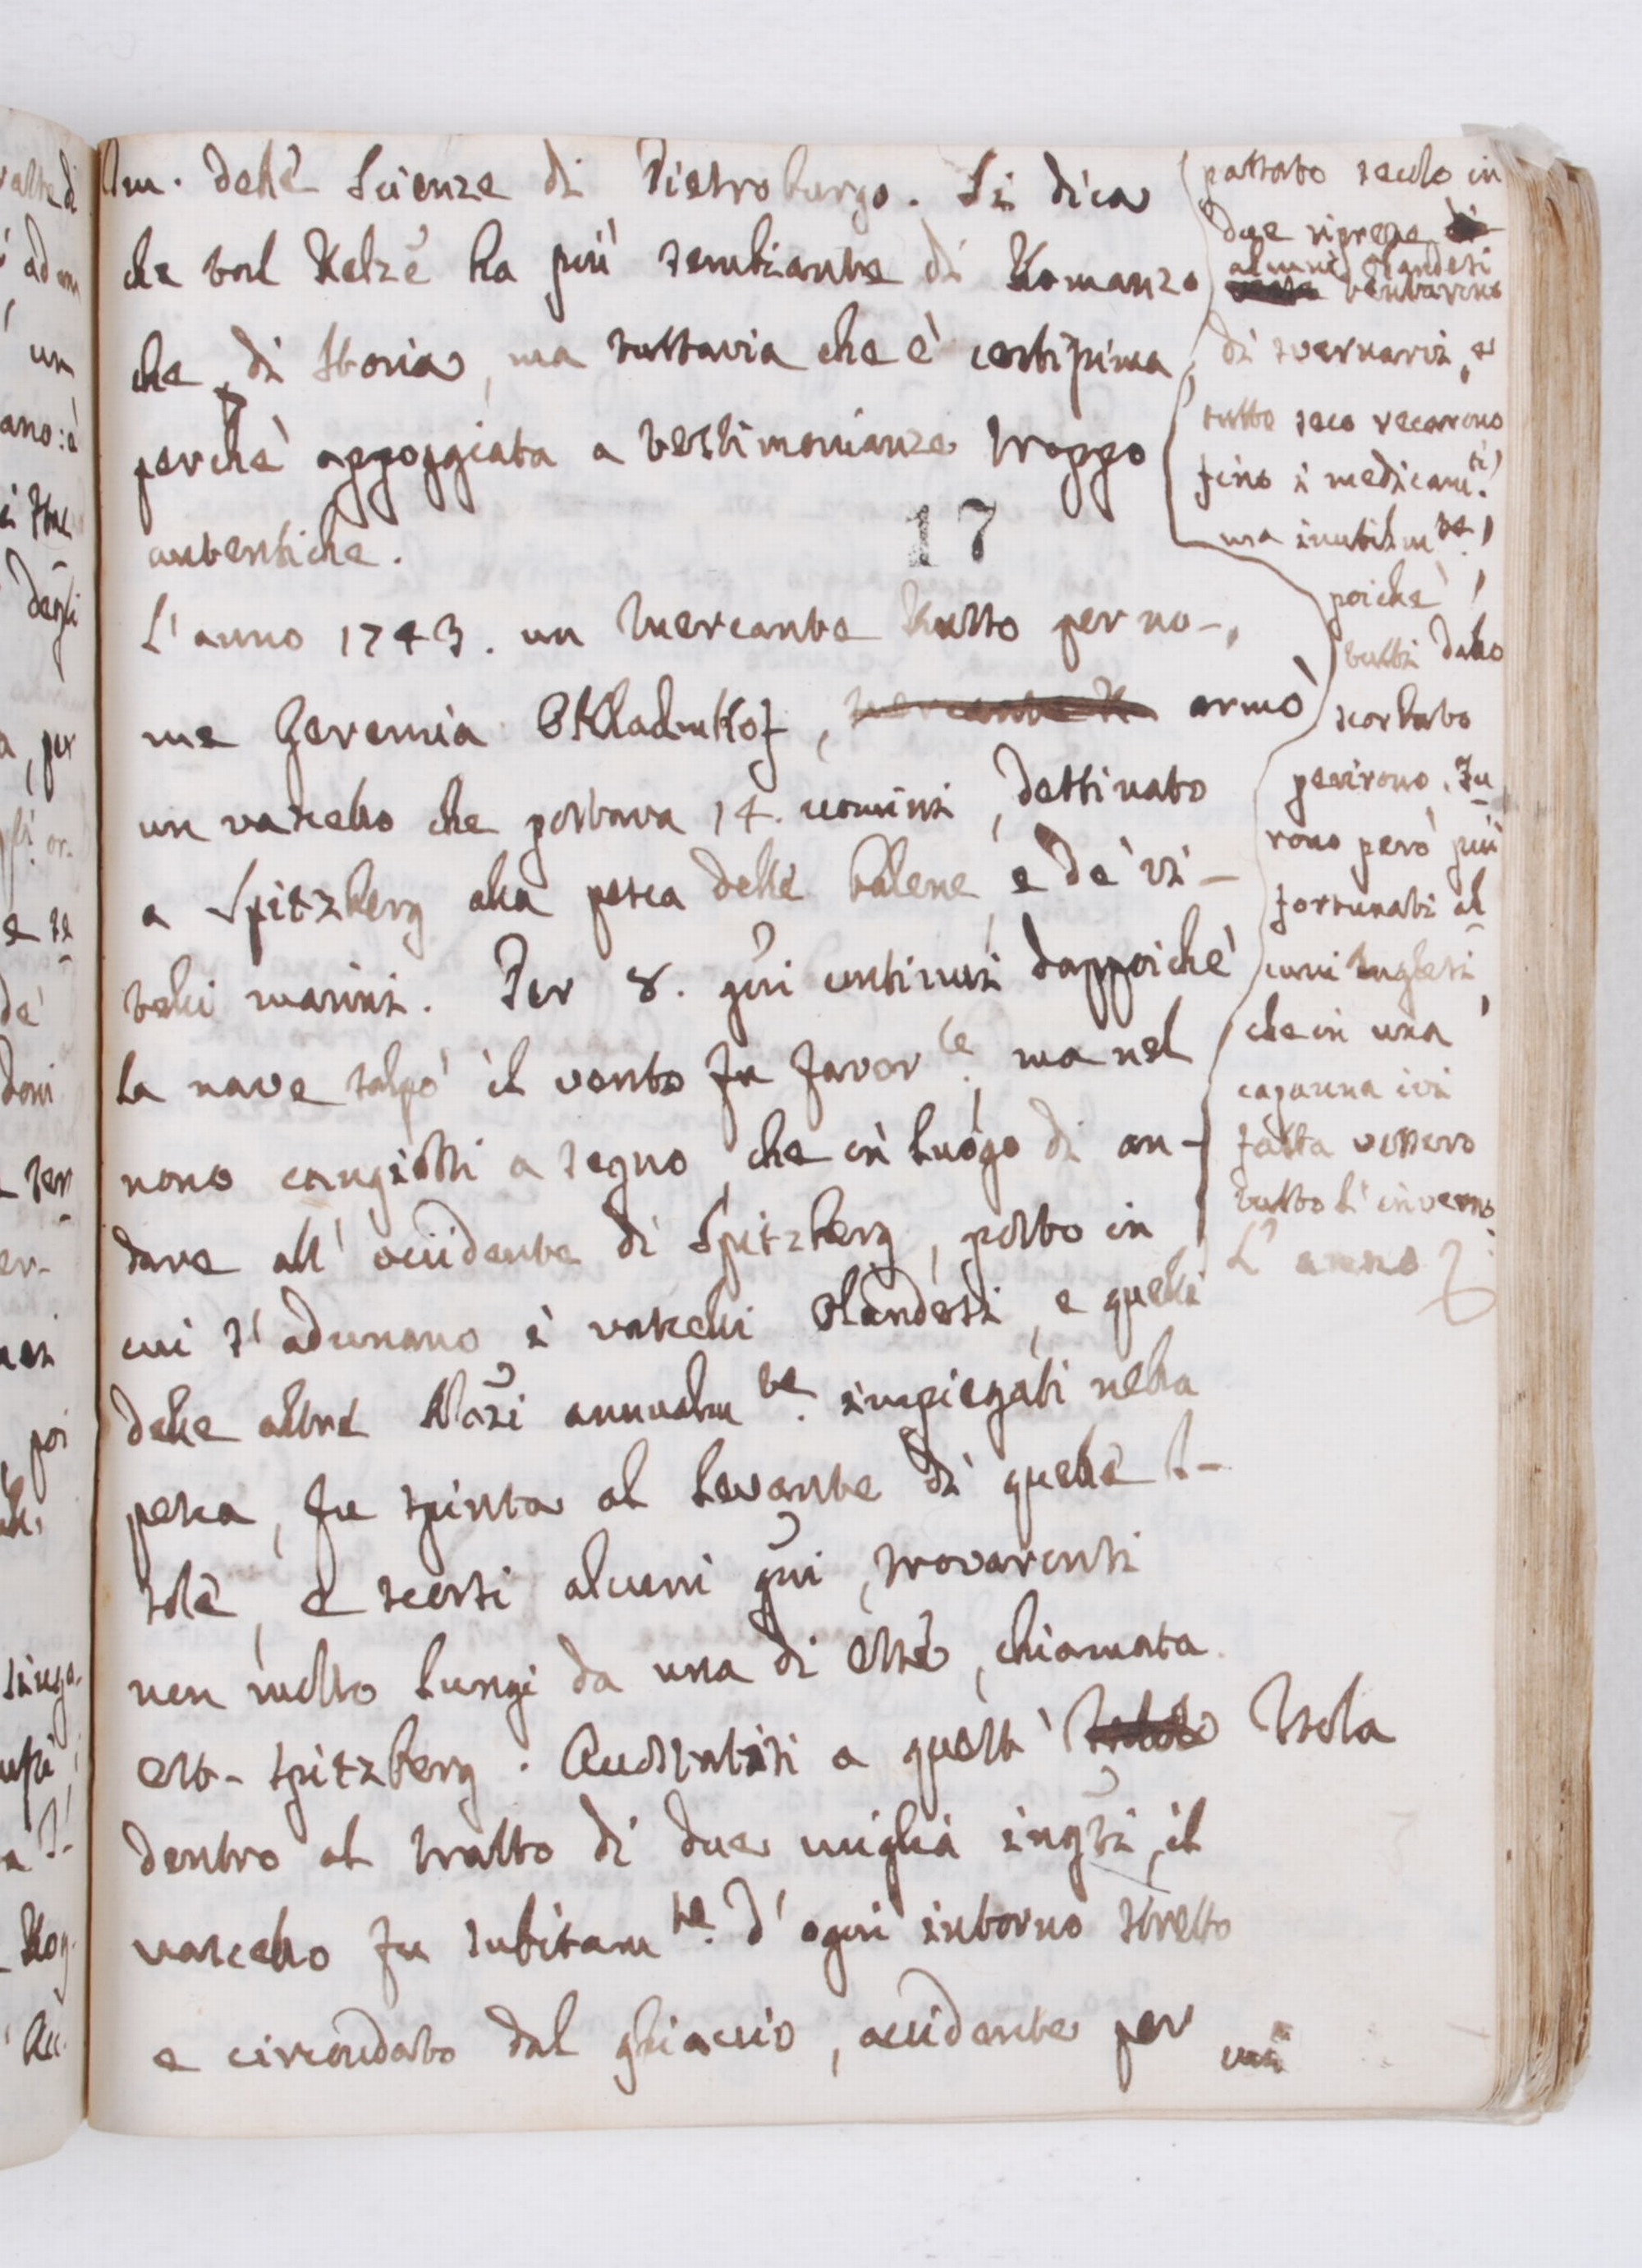 Am. delle Scienze di Pietroburgo. Si dica
che tal Relze ha più sembiante di Romanzo
che di Storia, ma tuttavia che è certissima
perchè appoggiata a testimonianze troppo
autentiche.
17
L'anno 1743. un Mercante Russo per no-
me Geremia OKladmKof, armò
un vascello che portava 14. uomini, destinato
a Spitzberg alla pesca delle balene, e de' vi-
telli marini. Per 8. gni continui dappoichè
la nave salpò il vento fu favorle. ma nel
nono cangiossi a segno, che in luogo di an-
dare all' occidente di Spitzberg, posto in
cui s' adunano i vascelli Olandesi, e quelli
delle altre Nazi annualmte. impiegati nella
pesca, fu spinta al Levante di quelle I-
sole, e scorsi alcuni gni, trovaronsi
non molto lungi da una di esse, chiamata
est-spitzberg. Accostatisi a quest' Isola
dentro al tratto di due miglia inglsi, il
vascello fu subitamte. d' ogni intorno stretto
e circondato dal ghiaccio, accidente per
passato secolo in
due riprese
alcuni Olandesi
tentarono
di svernarvi, e
tutto seco recarono
fino i medicamti.
ma inutilmte.,
poichè
tutti dallo
scorbuto
perirono. Fu
rono però più
fortunati al
cuni Inglesi,
che in una
capanna ivi
fatta vissero
tutto l' inverno.
L' anno